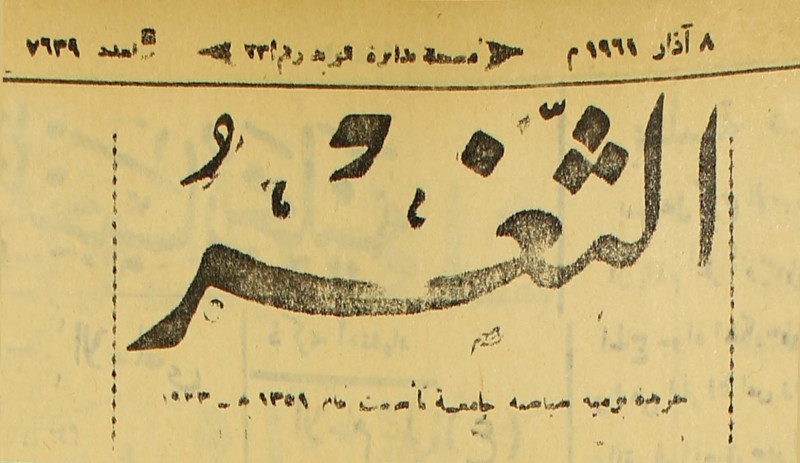 ٨ آذار ١٩٦١ م مسجلة بدائرة البريد رقم ٢٣ العدد ٧٦٣٩
الثَّغْرُ
جريدة يومية سياسية جامعة تأسست عام ١٣٥١ هـ